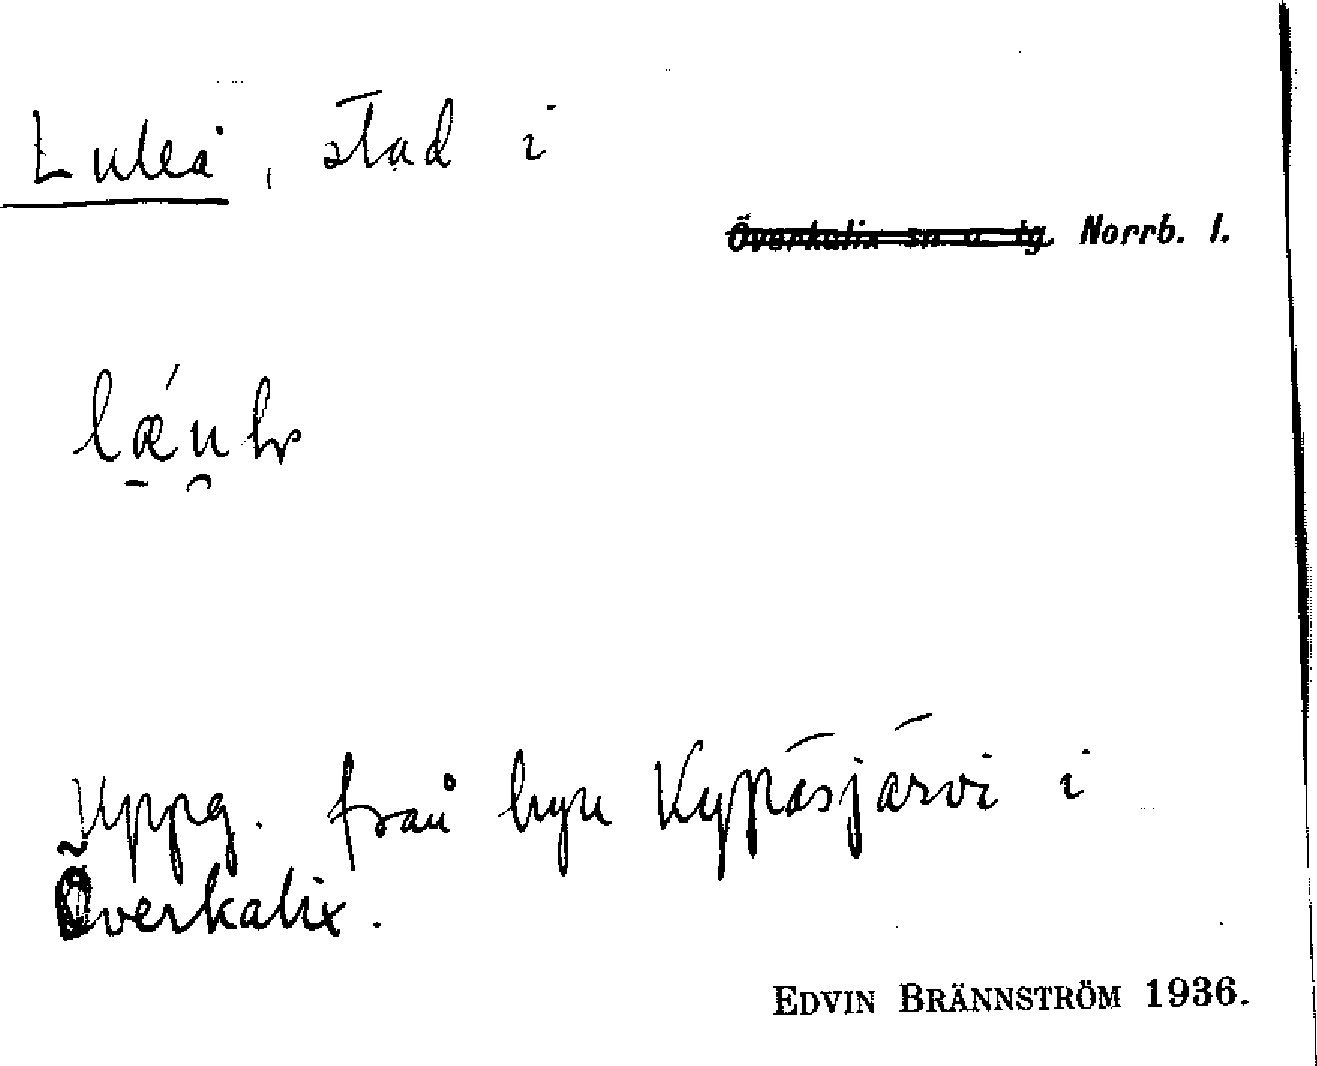 Luleå, stad i
Överkalix sn o. tg Norrb. l.
Uppg. från byn Kypäsjärvi i
Överkalix.
EDVIN BRÄNNSTRÖM 1936.